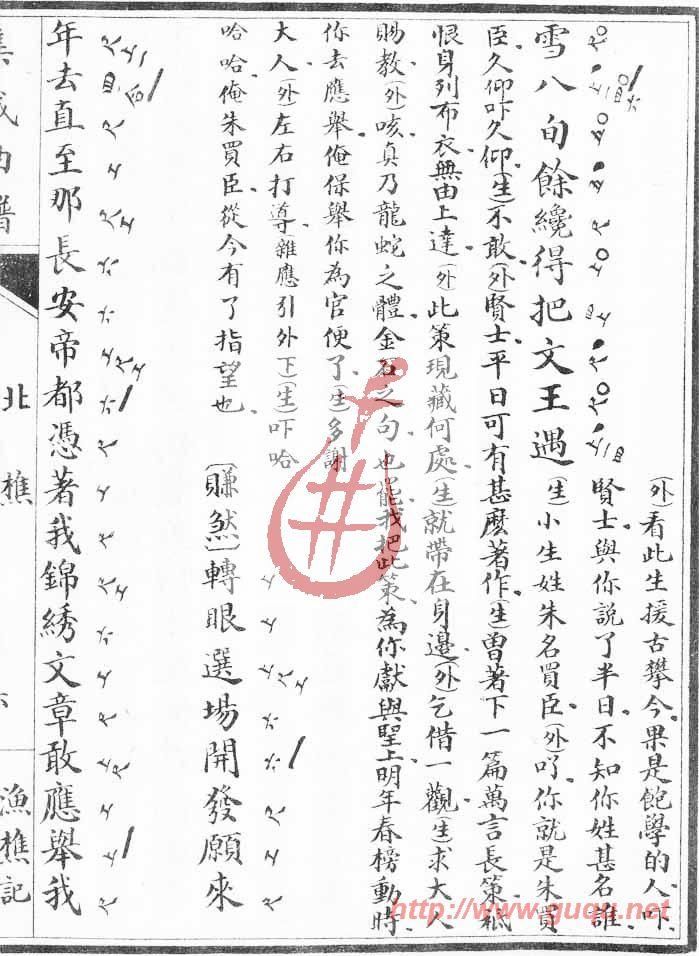 (外)看此生援古攀今、果是飽學的人、吓、
賢士、與你說了半日、不知你姓甚名誰、
雪八句餘纔得把文王遇(生)小生姓朱名買臣、(外)吖、你就是朱買
臣、久仰吓久仰、(生)不敢、(外)賢士、平日可有甚麽著作、(生)曾著下一篇萬言長策、秪
恨身列布衣、無由上達、(外)此策現藏何處、(生)就帶在身邊、(外)乞借一觀、(生)求大人
賜教、(外)咳、真乃龍蛇之體、金石之句也、罷、我把此策、為你獻與聖上、明年春榜動時、
你去應舉、俺保舉你為官便了、(生)多謝
大人、(外)左右打導、(雜應引外下)(生)吓哈
哈哈、俺朱買臣從今有了指望也、(賺煞)轉眼選場開發願來
年去直至那長安帝都憑著我錦綉文章敢應舉我
集成曲譜
北樵
漁樵記
http://www.guqu.net